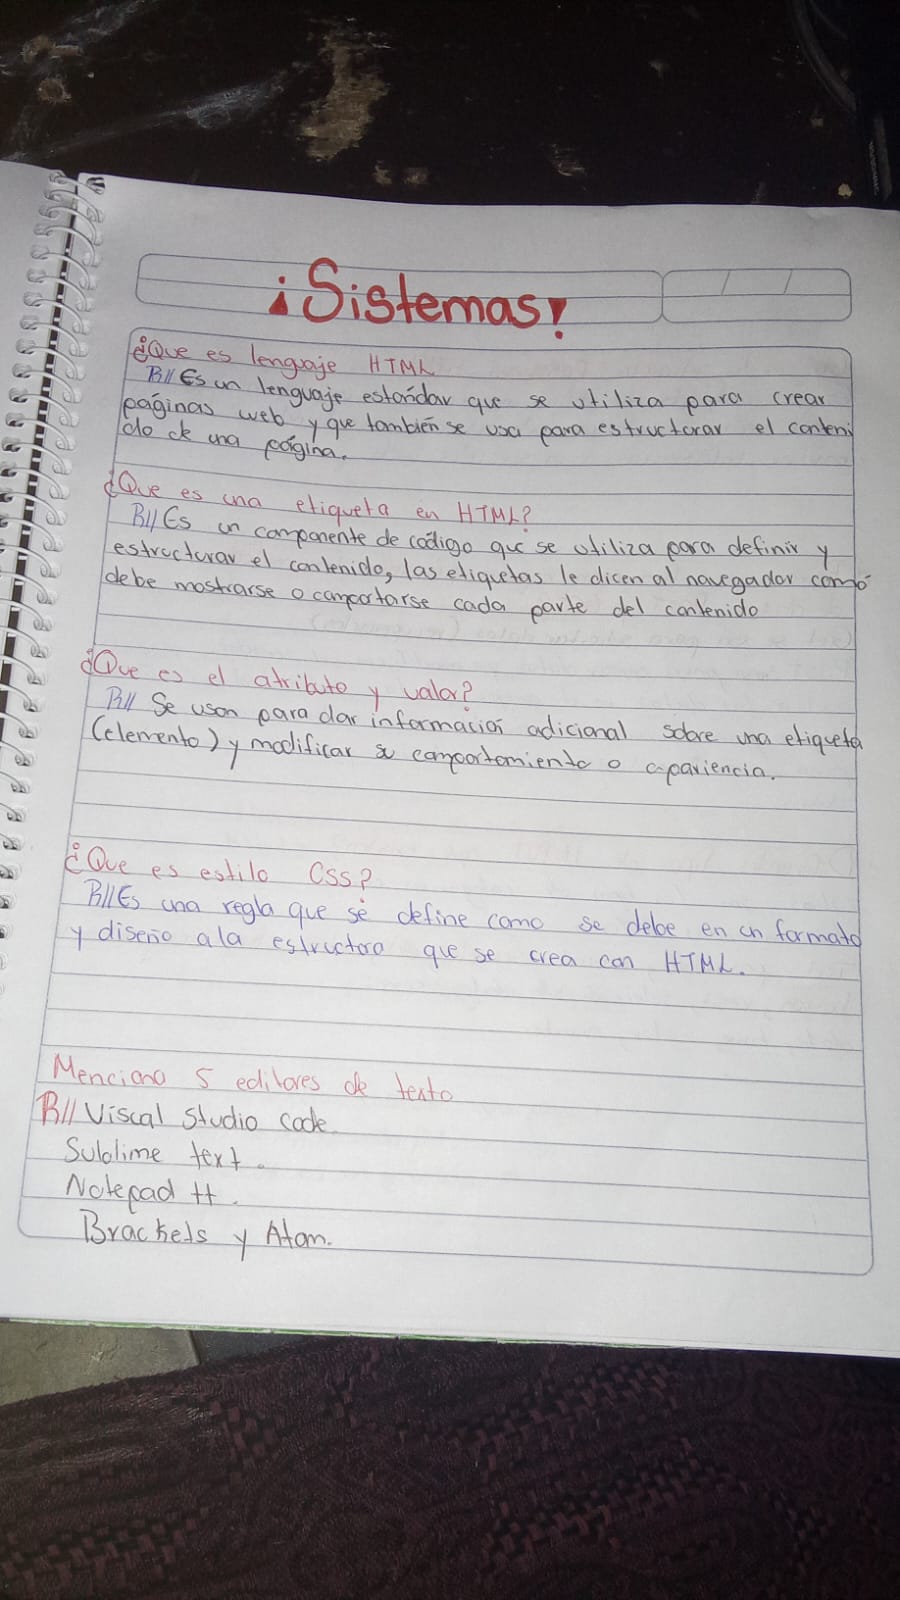 ¡Sistemas!
¿Que es lenguaje HTML
R// Es un lenguaje estándar que se utiliza para crear
páginas web y que también se usa para estructurar el conteni
do de una página.
¿Que es una etiqueta en HTML?
R// Es un componente de código que se utiliza para definir y
estructurar el contenido, las etiquetas le dicen al navegador como
debe mostrarse o comportarse cada parte del contenido
¿Que es el atributo y valor?
R// Se usan para dar información adicional sobre una etiqueta
(elemento) y modificar su comportamiento o apariencia.
¿Que es estilo Css?
R// Es una regla que se define como se debe en un formato
y diseño a la estructura que se crea con HTML.
Menciona 5 editores de texto
R// Viscal Studio code.
Sublime text.
Notepad ++.
Brackels y Atom.